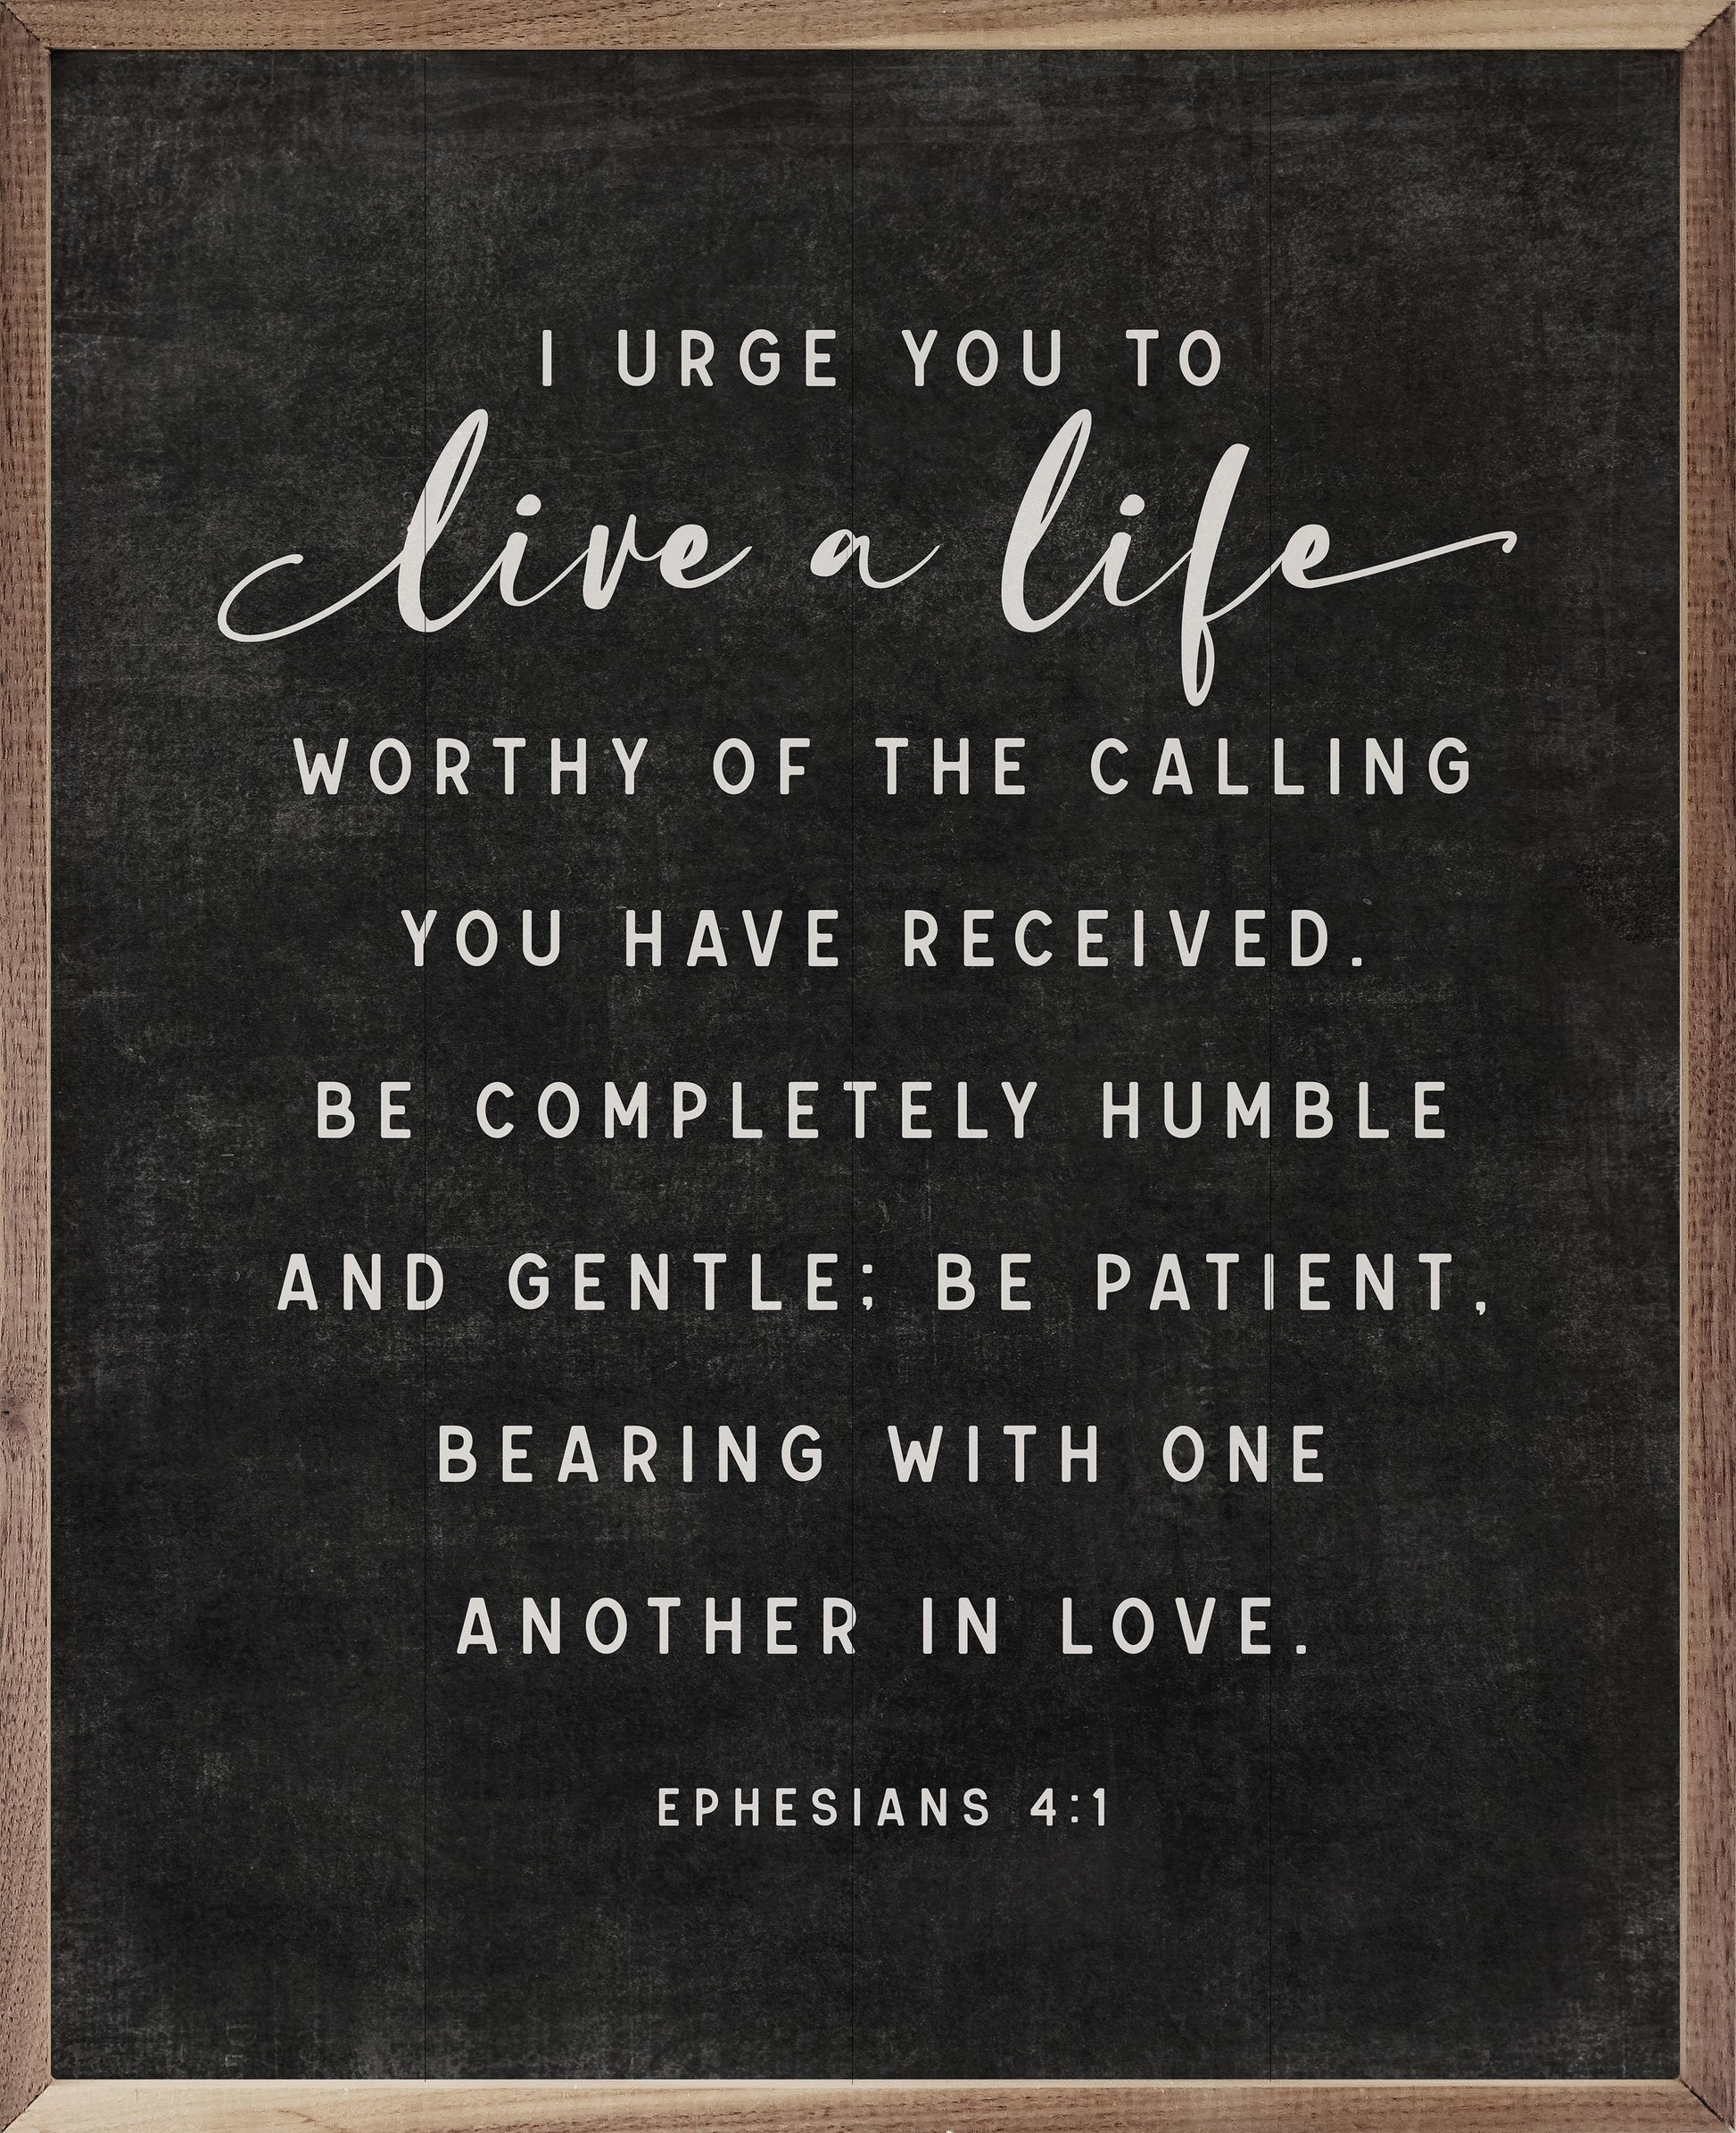 I URGE YOU TO
live a life
WORTHY OF THE CALLING
YOU HAVE RECEIVED.
BE COMPLETELY HUMBLE
AND GENTLE; BE PATIENT,
BEARING WITH ONE
ANOTHER IN LOVE.
EPHESIANS 4:1